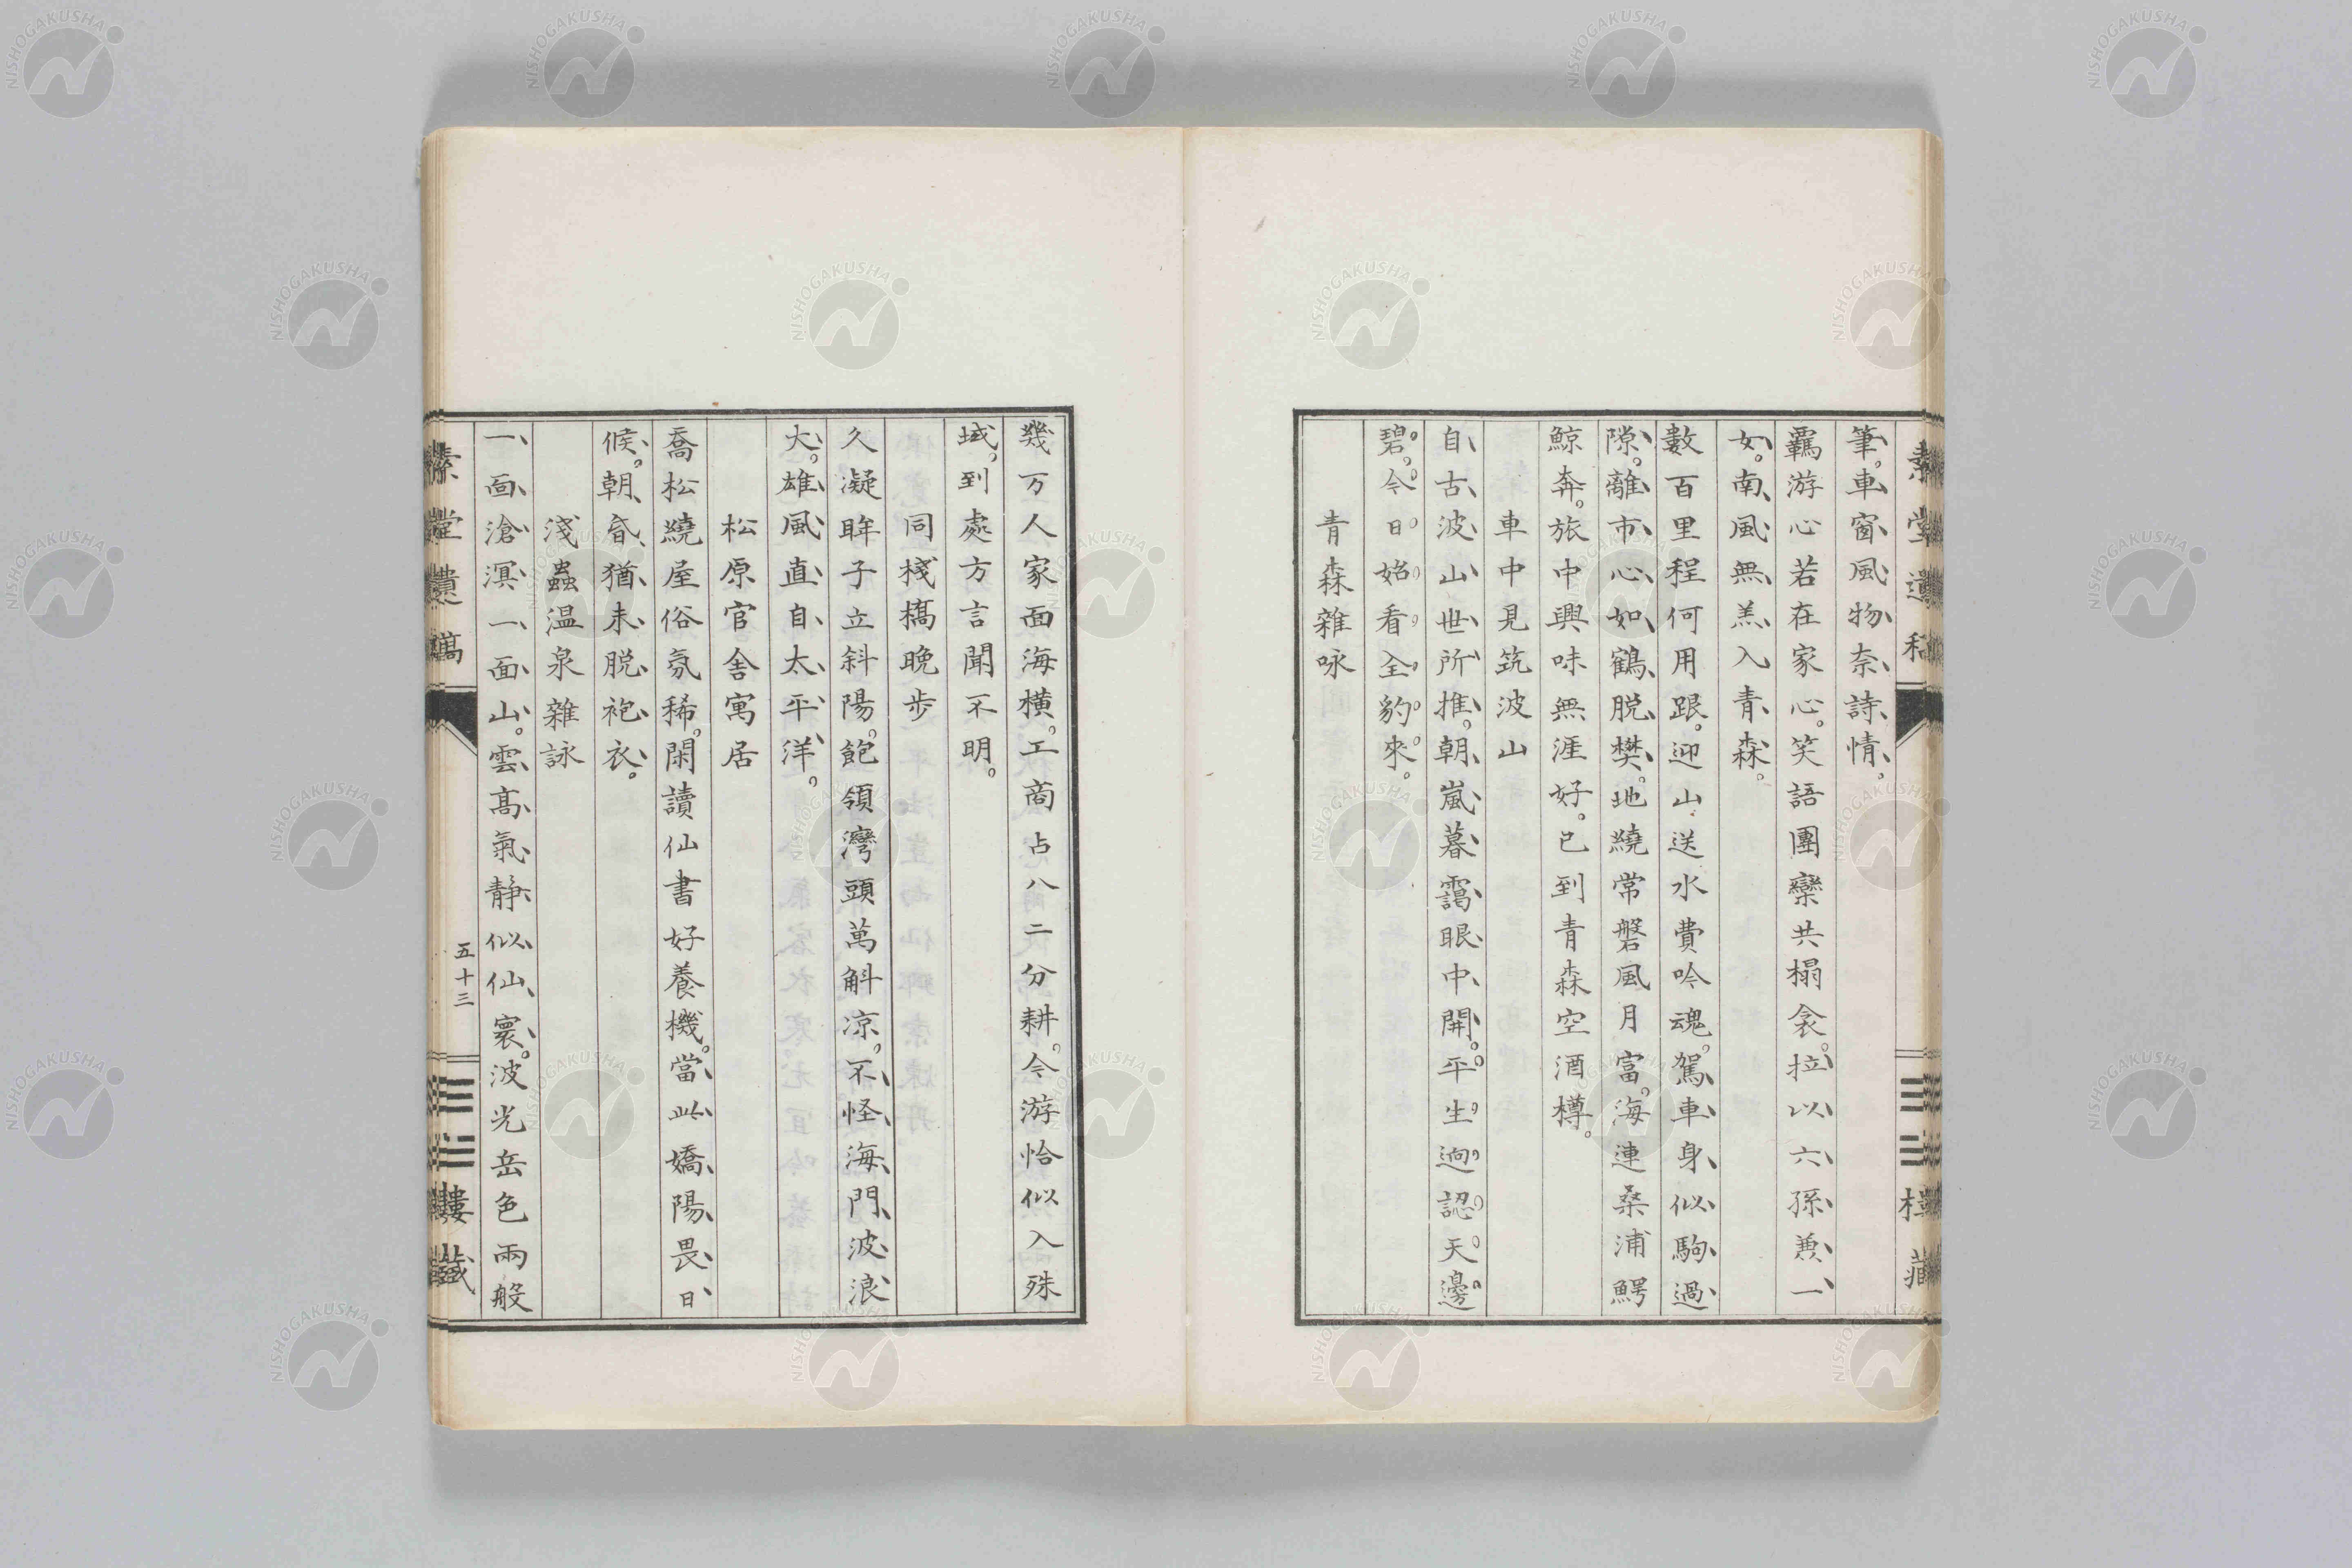 筆。車窗風物奈詩情。
羈游心若在家心。笑語團欒共榻衾。拉以六孫兼一
女。南風無恙入青森。
數百里程何用跟。迎山送水費吟魂。駕車身似駒過
隙。離市心如鶴脱樊。地繞常磐風月富。海連桑浦鰐
鯨奔。旅中興味無涯好。已到青森空酒樽。
車中見筑波山
自古波山世所推。朝嵐暮靄眼中開。平生逈認天邊
碧。今日始看全豹來。
青森雜咏
幾万人家面海横。工商占八二分耕。今游恰似入殊
域。到處方言聞不明。
同棧橋晩歩
久凝眸子立斜陽。飽領灣頭萬斛凉。不怪海門波浪
大。雄風直自太平洋。
松原官舍寓居
喬松繞屋俗氛稀。閑讀仙書好養機。當此嬌陽畏日
候。朝昏猶未脱袍衣。
淺蟲温泉雜詠
一面滄溟一面山。雲髙氣静似仙寰。波光岳色兩般
五十三
NISHOGAKUSHA